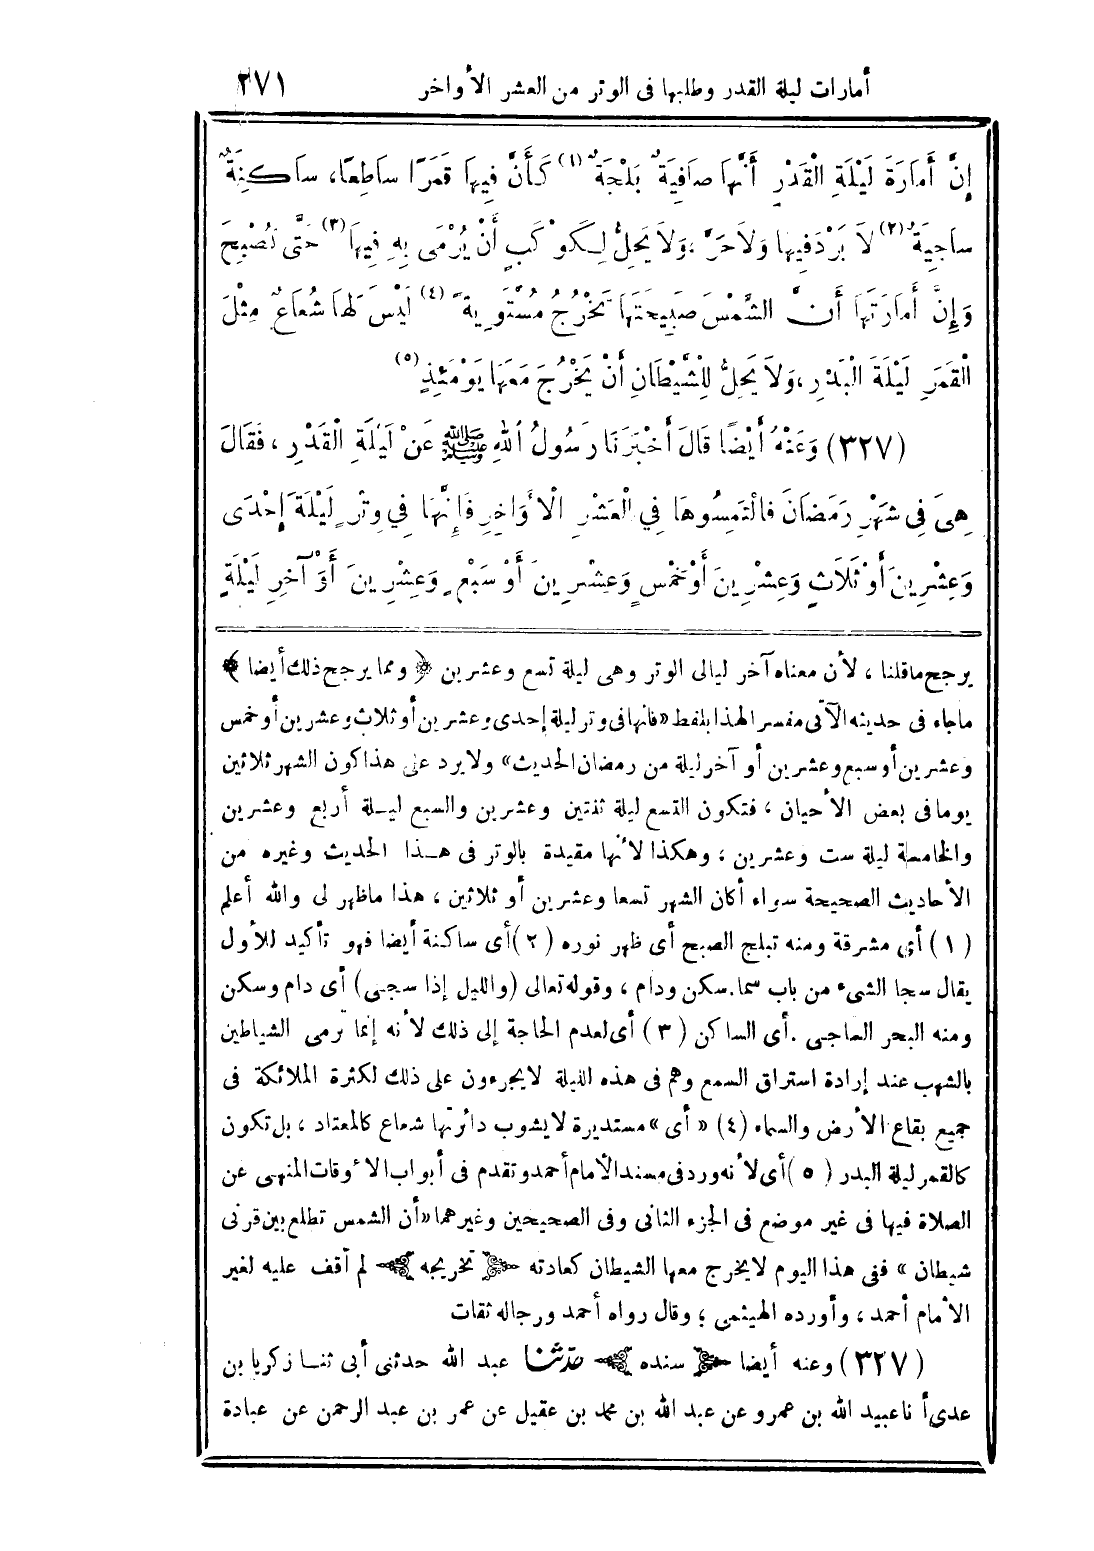 أمارات ليلة القدر وطلبها فى الوتر من العشر الأواخر ٢٧١
إِنَّ أَمَارَةَ لَيْلَةِ الْقَدْرِ أَنَّهَا صَافِيَةٌ بَلْجَةٌ (١) كَأَنَّ فِيهَا قَمَرًا سَاطِعًا، سَاكِنَةٌ
سَاجِيَةٌ (٢) لاَ بَرْدَ فِيهَا وَلاَ حَرَّ ، وَلاَ يَحِلُّ لِكَوْكَبٍ أَنْ يُرْمَى بِهِ فِيهَا (٣) حَتَّى تُصْبِحَ
وَإِنَّ أَمَارَتَهَا أَنَّ الشَّمْسَ صَبِيحَتَهَا تَخْرُجُ مُسْتَوِيَةً (٤) لَيْسَ لَهَا شُعَاعٌ مِثْلَ
الْقَمَرِ لَيْلَةَ الْبَدْرِ ، وَلاَ يَحِلُّ لِلشَّيْطَانِ أَنْ يَخْرُجَ مَعَهَا يَوْمَئِذٍ (٥)
(٣٢٧) وَعَنْهُ أَيْضًا قَالَ أَخْبَرَنَا رَسُولُ اللهِ ﷺ عَنْ لَيْلَةِ الْقَدْرِ ، فَقَالَ
هِىَ فِى شَهْرِ رَمَضَانَ فَالْتَمِسُوهَا فِي الْعَشْرِ الْأَوَاخِرِ فَإِنَّهَا فِي وِتْرٍ لَيْلَةَ إِحْدَى
وَعِشْرِينَ أَوْ ثَلاَثٍ وَعِشْرِينَ أَوْ خَمْسٍ وَعِشْرِينَ أَوْ سَبْعٍ وَعِشْرِينَ أَوْ آخِرِ لَيْلَةٍ
يرجح ما قلنا ، لأن معناه آخر ليالى الوتر وهى ليلة تسع وعشرين ﴿ ومما يرجح ذلك أيضا ﴾
ماجاء فى حديثه الآتى مفسرا لهذا بلفظ «فانها فى وتر ليلة إحدى وعشرين أو ثلاث وعشرين أو خمس
وعشرين أو سبع وعشرين أو آخر ليلة من رمضان الحديث» ولا يرد على هذا كون الشهر ثلاثين
يوما فى بعض الأحيان ، فتكون التسع ليلة ثنتين وعشرين والسبع ليلة أربع وعشرين
والخامسة ليلة ست وعشرين ، وهكذا لأنها مقيدة بالوتر فى هذا الحديث وغيره من
الأحاديث الصحيحة سواء أكان الشهر تسعا وعشرين أو ثلاثين ، هذا ماظهر لى والله أعلم
(١) أى مشرقة ومنه تبلج الصبح أى ظهر نوره (٢) أى ساكنة أيضا فهو تأكيد للأول
يقال سجا الشىء من باب سما. سكن ودام ، وقوله تعالى (والليل إذا سجى) أى دام وسكن
ومنه البحر الساجى . أى الساكن (٣) أى لعدم الحاجة إلى ذلك لأنه إنما ترمى الشياطين
بالشهب عند إرادة استراق السمع وهم فى هذه الليلة لا يجرءون على ذلك لكثرة الملائكة فى
جميع بقاع الأرض والسماء (٤) « أى » مستديرة لا يشوب دائرتها شعاع كالمعتاد ، بل تكون
كالقمر ليلة البدر (٥) أى لأنه ورد فى مسند الأمام أحمد وتقدم فى أبواب الأوقات المنهى عن
الصلاة فيها فى غير موضع فى الجزء الثانى وفى الصحيحين وغيرهما «أن الشمس تطلع بين قرنى
شيطان » ففى هذا اليوم لا يخرج معها الشيطان كعادته ﴿ تخريجه ﴾ لم أقف عليه لغير
الأمام أحمد ، وأورده الهيثمى ؛ وقال رواه أحمد ورجاله ثقات
(٣٢٧) وعنه أيضا ﴿ سنده ﴾ حدثنا عبد الله حدثنى أبى ثنا زكريا بن
عدى أنا عبيد الله بن عمرو عن عبد الله بن محمد بن عقيل عن عمر بن عبد الرحمن عن عبادة